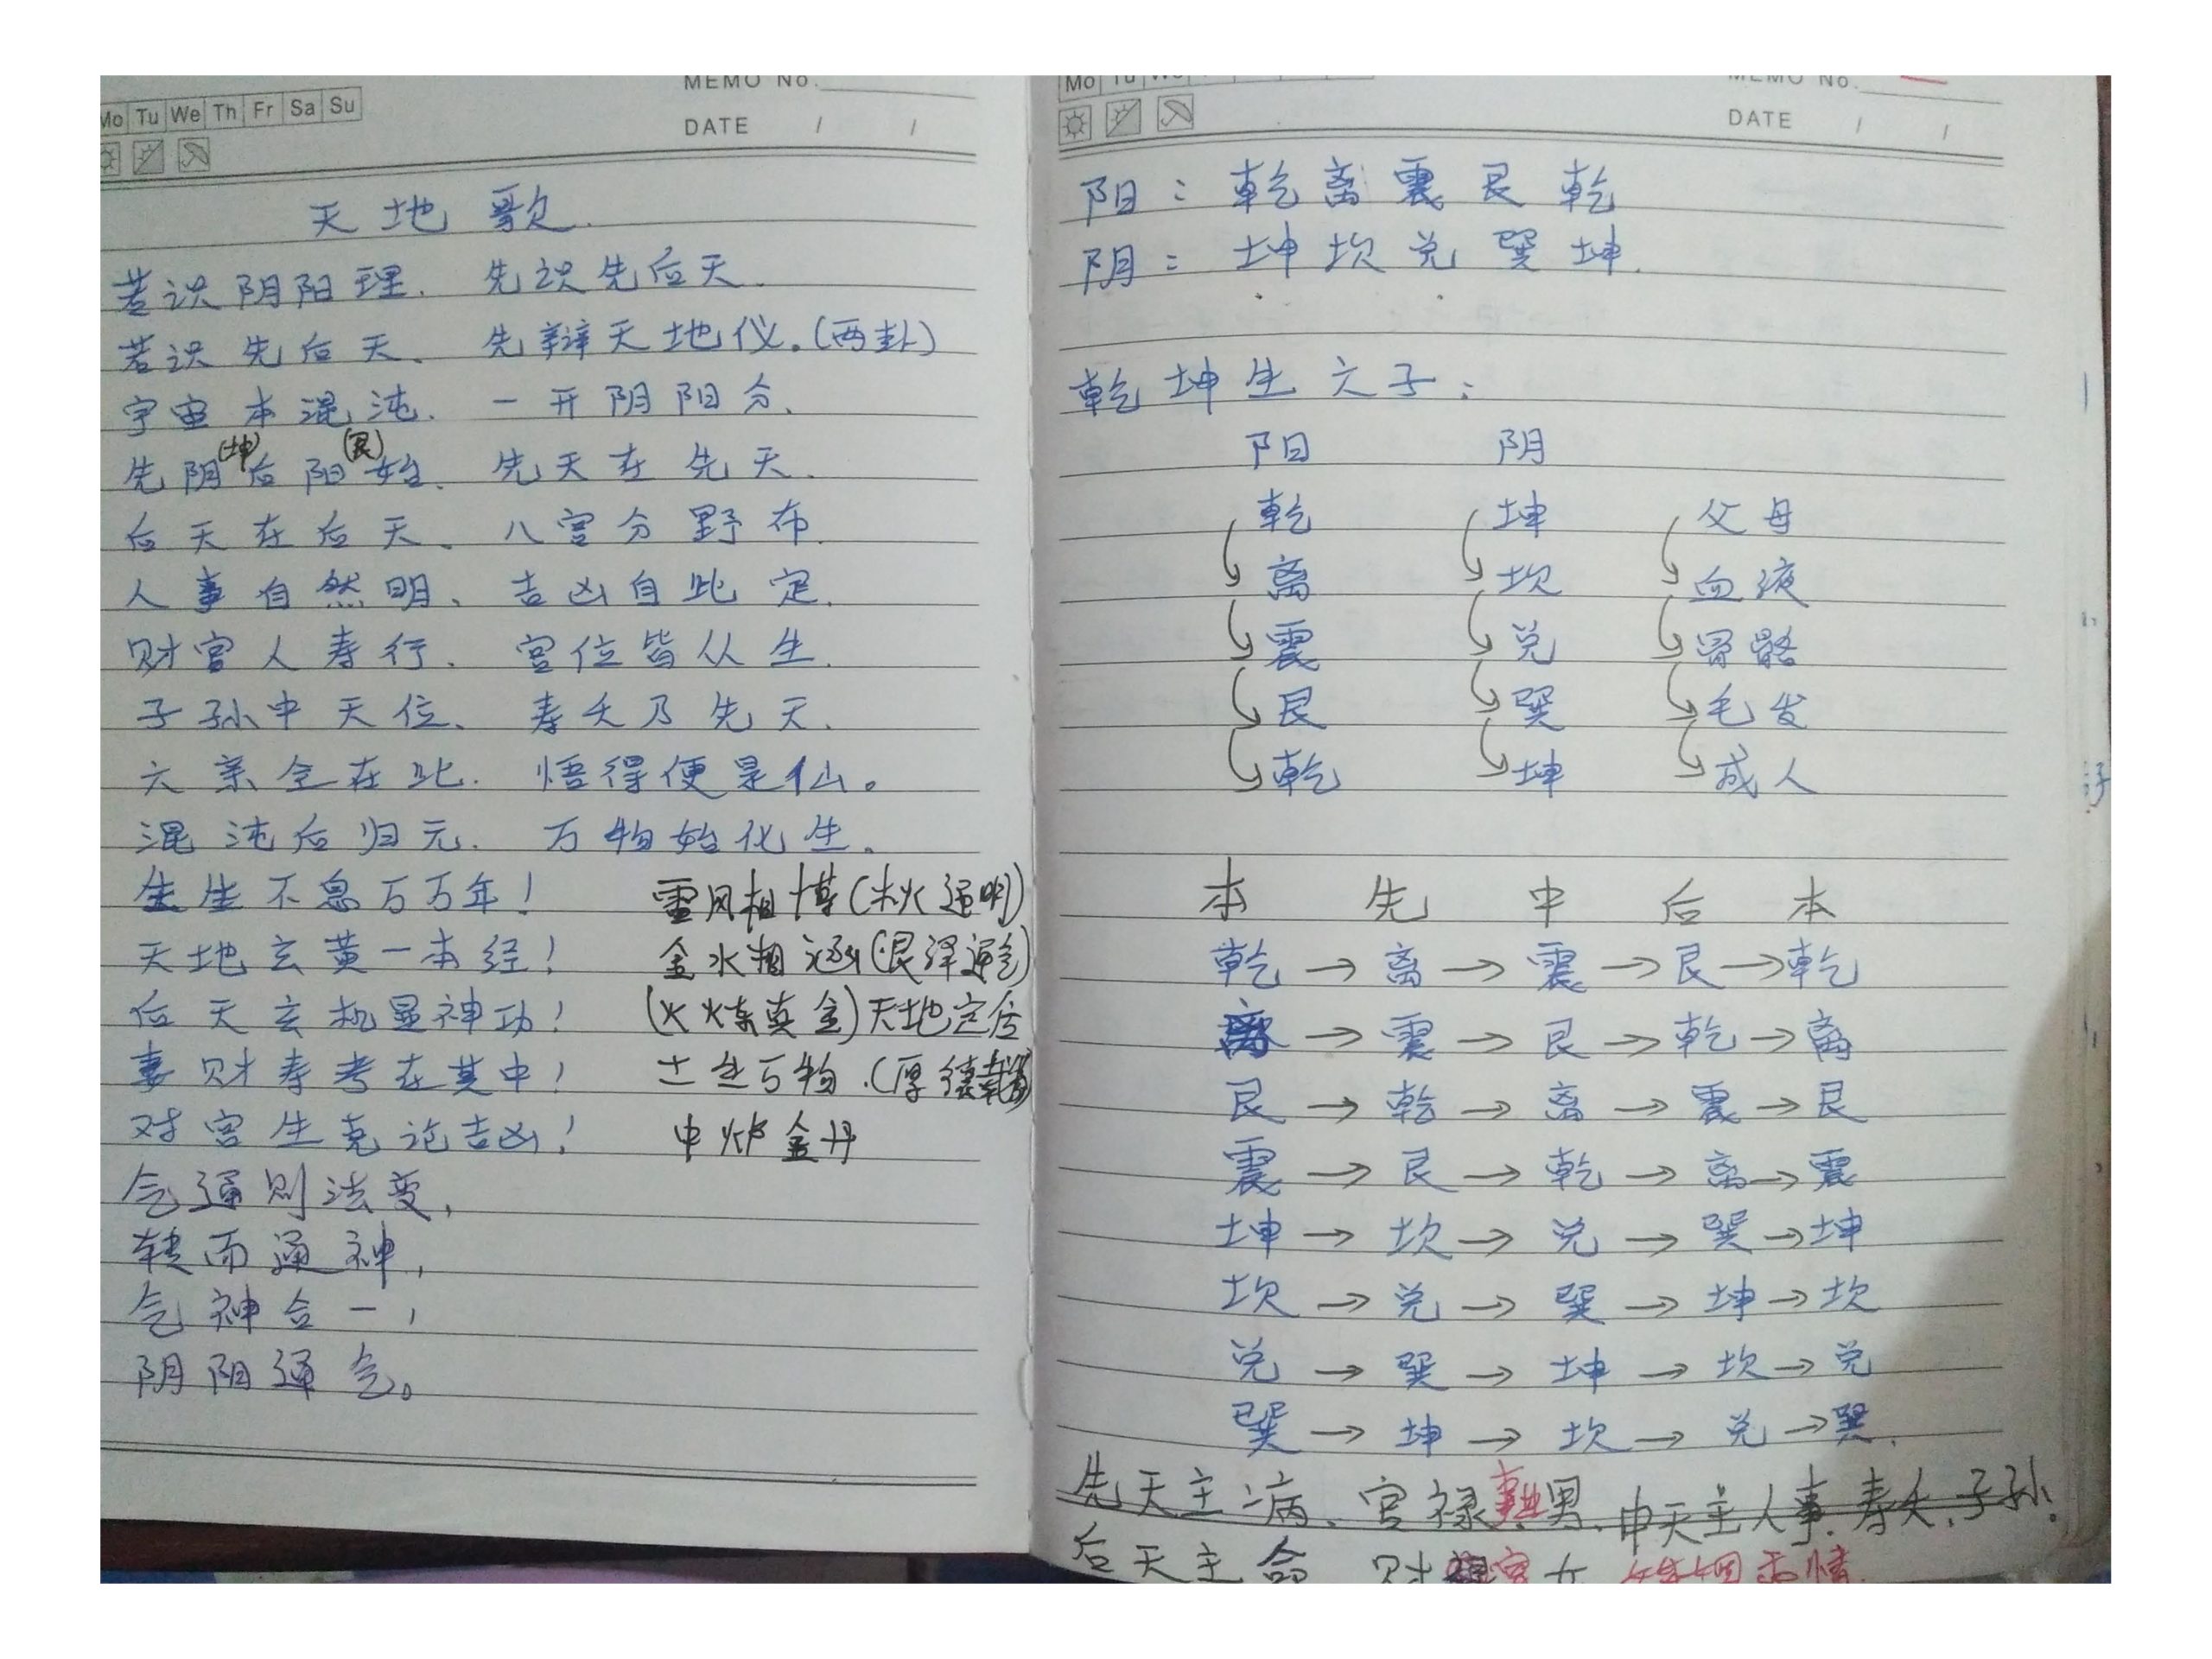 Mo Tu We Th Fr Sa Su
MEMO No.
DATE / /
天地歌
若识阴阳理、先识先后天.
若识先后天、先辩天地仪。(两卦)
宇宙本混沌、一开阴阳分、
(坤) (艮)
先阴后阳始、先天在先天.
后天在后天、八宫分野布.
人事自然明、吉凶自此定.
财官人寿行、宫位皆从生.
子孙中天位、寿夭乃先天.
六亲全在此.悟得便是仙。
混沌后归元.万物始化生。
生生不息万万年！ 雷风相博(木火通明)
天地玄黄一本经！ 金水相涵(艮泽通气)
后天玄机显神功！ (火炼真金)天地定位
妻财寿考在其中！ 土生万物.(厚德载物)
对宫生克论吉凶！ 中炉金丹
气通则法变,
转而通神,
气神合一,
阴阳通气。
Mo Tu We
MEMO No.
DATE / /
阳：乾离震艮乾
阴：坤坎兑巽坤.
乾坤生六子：
阳 阴
乾 坤 父母
离 坎 血液
震 兑 骨骼
艮 巽 毛发
乾 坤 成人
本 先 中 后 本
乾→离→震→艮→乾
离→震→艮→乾→离
艮→乾→离→震→艮
震→艮→乾→离→震
坤→坎→兑→巽→坤
坎→兑→巽→坤→坎
兑→巽→坤→坎→兑
巽→坤→坎→兑→巽.
先天主病、官禄男.中天主人事.寿夭.子孙.
后天主命 财 女 婚姻 情.